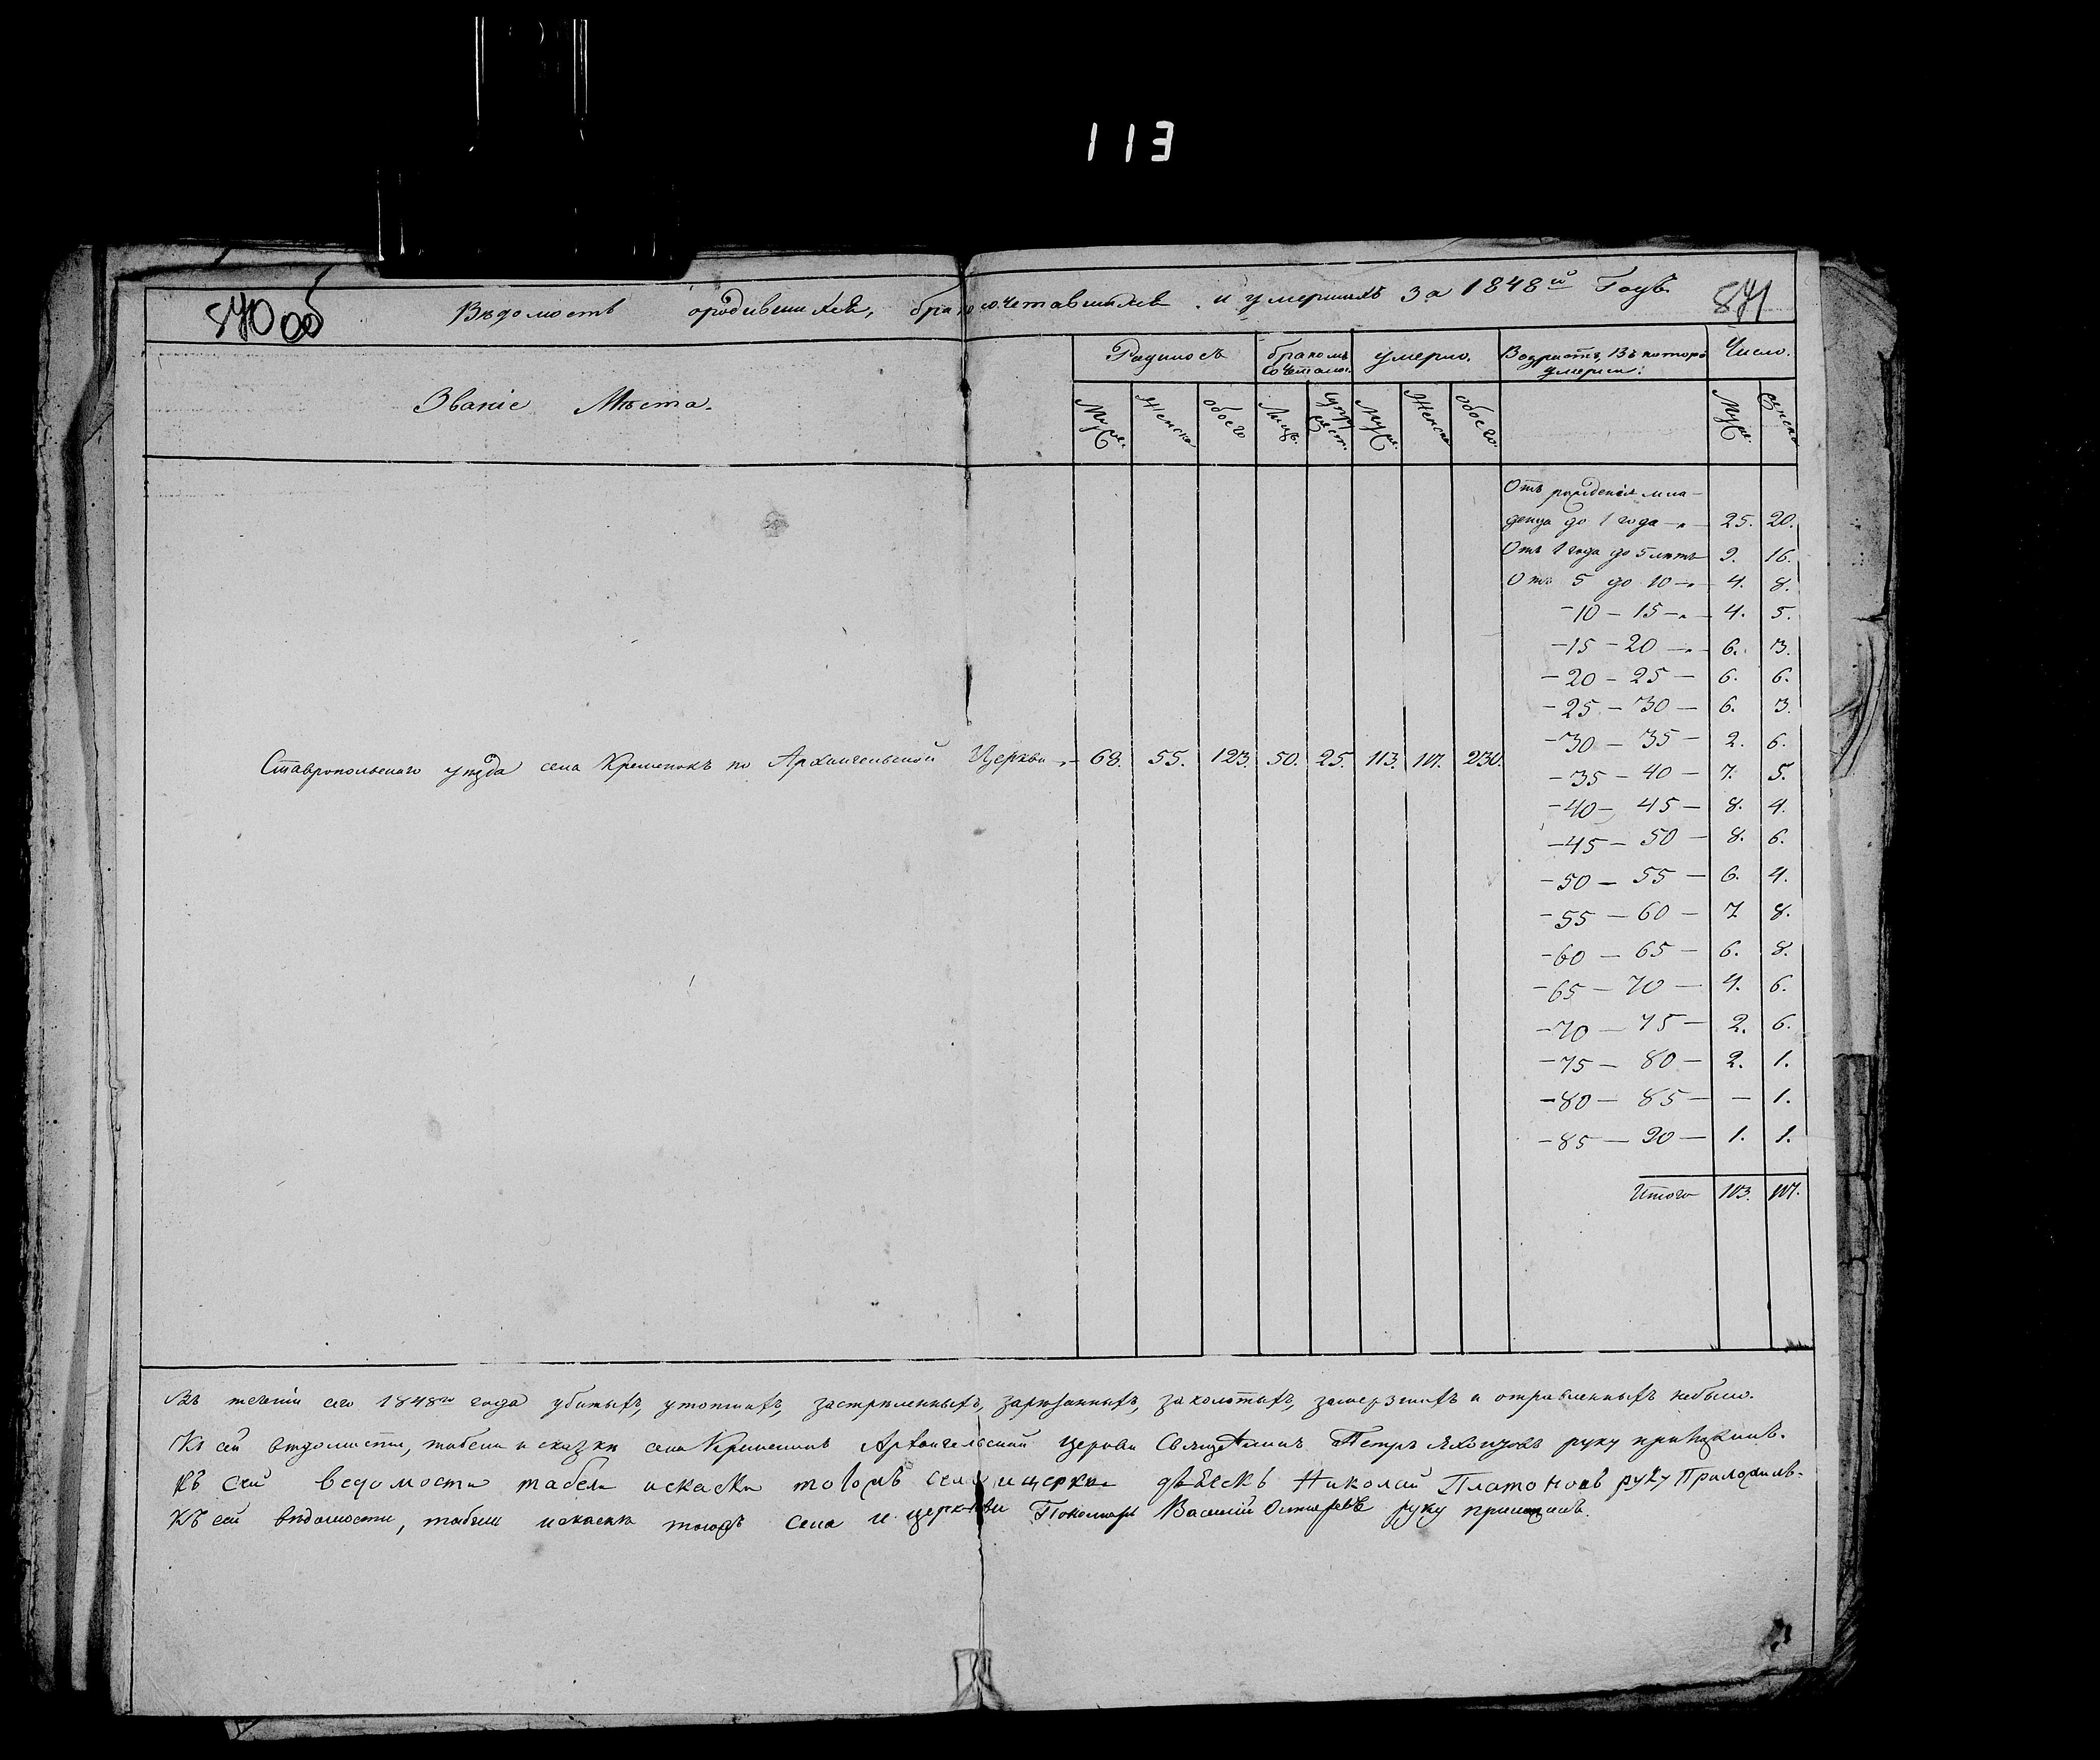 113
840 об
Ведомость о родившихся, бракосочетавшихся и умершихъ за 1848й Годъ
841
Звание Места.
Родилось
бракомъ сочетано.
умерло.
Возрастъ, въ которо умерли:
Число.
Муж. Женска обоего Лицъ. Супружест. Муже. Женска обоего. Муж. Женска
Отъ рождения мла-
денца до 1 года 25. 20.
Отъ 1 года до 5 летъ 9. 16.
Отъ 5 до 10 4. 8.
10 — 15 4. 5.
15 — 20 6. 3.
20 — 25 — 6. 6.
25 — 30 — 6. 3.
30 — 35 — 2. 6.
Ставропольскаго уезда села Кременокъ по Архангельской Церкви 68. 55. 123. 50. 25. 113. 117. 230.
35 — 40 — 7. 5.
40 — 45 — 8. 4.
45 — 50 — 8. 6.
50 — 55 — 6. 4.
55 — 60 — 7 8.
60 — 65 — 6. 8.
65 — 70 — 4. 6.
70 — 75 — 2. 6.
75 — 80 — 2. 1.
80 — 85 — — 1.
85 — 90 — 1. 1.
Итого 113. 117.
Въ течении сего 1848го года убитыхъ, утопшихъ, застреленныхъ, зарезанныхъ, заколотыхъ, замерзшихъ и отравленныхъ небыло.
Къ сей ведомости, табели и сказки села Кременокъ Архангельской церкви Священникъ Петръ руку приложилъ.
Къ сей ведомости табели искаски тогожъ села и церкви Николай Платоновъ руку Приложилъ.
Къ сей ведомости, табели искаски тогожъ села и церкви Пономарь Василий руку приложилъ.